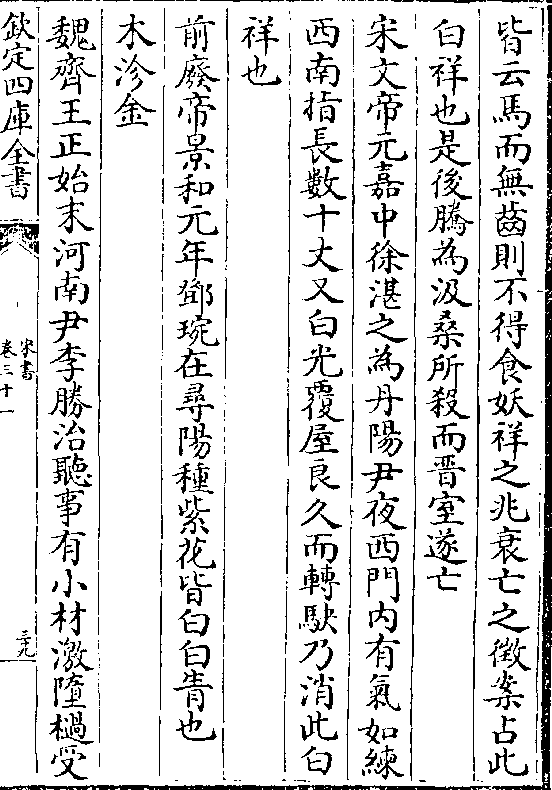 皆云馬而無齒則不得食妖祥之兆衰亡之徵案占此
白祥也是後騰為汲桑所殺而晉室遂亡
宋文帝元嘉中徐湛之為丹陽尹夜西門内有氣如練
西南指長數十丈又白光覆屋良久而轉駃乃消此白
祥也
前廢帝景和元年鄧琬在尋陽種紫花皆白白眚也
木沴金
魏齊王正始末河南尹李勝治聽事有小材激墮檛受
欽定四庫全書
宋書
卷三十一
三十九